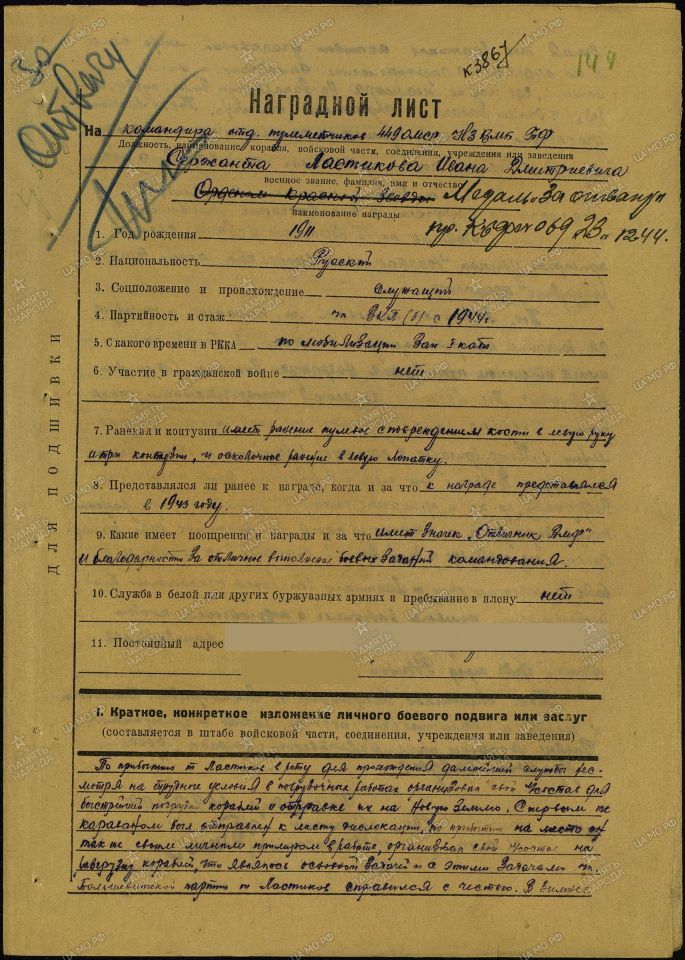 За
Отвагу
к 3867
144
Наградной лист
На командира отд. пулеметчиков 449
Должность, наименование корабля, войсковой части, соединения, учреждения или заведения
Сержанта Ластикова Ивана Дмитриевича
военное звание, фамилия, имя и отчество
Орденом Красной Звезды Медаль "За отвагу"
наименование награды
23. 12.44.
1. Год рождения 1911
2. Национальность Русский
3. Соцположение и происхождение служащий
4. Партийность и стаж ВКП(б) с 1944г.
5. С какого времени в РККА по мобилизации
6. Участие в гражданской войне нет
7. Ранения и контузии имеет ранение пулевое с повреждением кости в левую руку
и три контузии, и осколочное ранение в левую лопатку.
8. Представлялся ли ранее к награде, когда и за что к награде представлялся
в 1943 году.
9. Какие имеет поощрения и награды и за что имеет значек "Отличник Вмф"
и благодарности за отличное выполнение боевых заданий командования.
10. Служба в белой или других буржуазных армиях и пребывание в плену нет
11. Постоянный адрес
ДЛЯ ПОДШИВКИ
I. Краткое, конкретное изложение личного боевого подвига или заслуг
(составляется в штабе войсковой части, соединения, учреждения или заведения)
По прибытию т Ластиков в роту для прохождения дальнейшей службы нес-
мотря на трудные условия в погрузочных работах организовал свой для
быстрейшей погрузки кораблей и отправке их на Новую Землю. С первым же
караваном был отправлен к месту дислокации, по прибытию на место он
так же своим личным примером в работе, организовал свой на
выгрузку кораблей, что являлось основной задачей и с этими задачами
Большевистской партии т Ластиков справился с честью. В зимнее